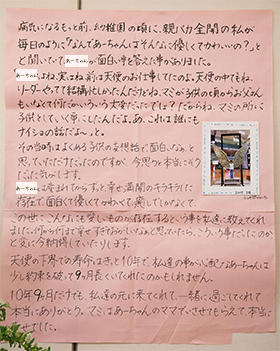 病気になるもっと前、幼稚園の頃に、親バカ全開の私が
毎日のように「なんてあーちゃんはそんなに優しくてかわいいの?」と
と聞いていてあーちゃんが面白い事を答えた事がありました。
あーちゃんよね、実はね、前は天使のお仕事してたのよ。天使の中でもね、
リーダーやってて結構忙しかったんだけどね、マミが子供の頃からお父さん
もいなくて何だかいろいろ大変だったでしょ?だからね、マミの所に
子供としていく事にしたんだよ。あ、これは誰にも
ナイショの話だよ〜。と。
その当時はよくある子供の妄想話で、面白いなあと
思っていただけだったのですが、今思うと本当にそう
だった気がします。
あーちゃんは産まれてからずっと幸せ満開のキラキラした
存在で、面白くて優しくてかわいくて、癒してしかなくて、
この世にこんなにも愛しいものが存在するという事を私達に教えてくれ
ました。何から何まで幸せすぎておかしいなあと思っていたら、こういう事だったのか
と変に今納得していたりします。
天使の下界での寿命はきっと10年で、私達の事が心配なあーちゃんは
少し約束を破って9ヶ月長くいてくれたのかもしれません。
10年9ヶ月だけでも、私達の元に来てくれて、一緒に過ごしてくれて
本当にありがとう。マミはあーちゃんのママでいさせてもらえて本当に
せでした。